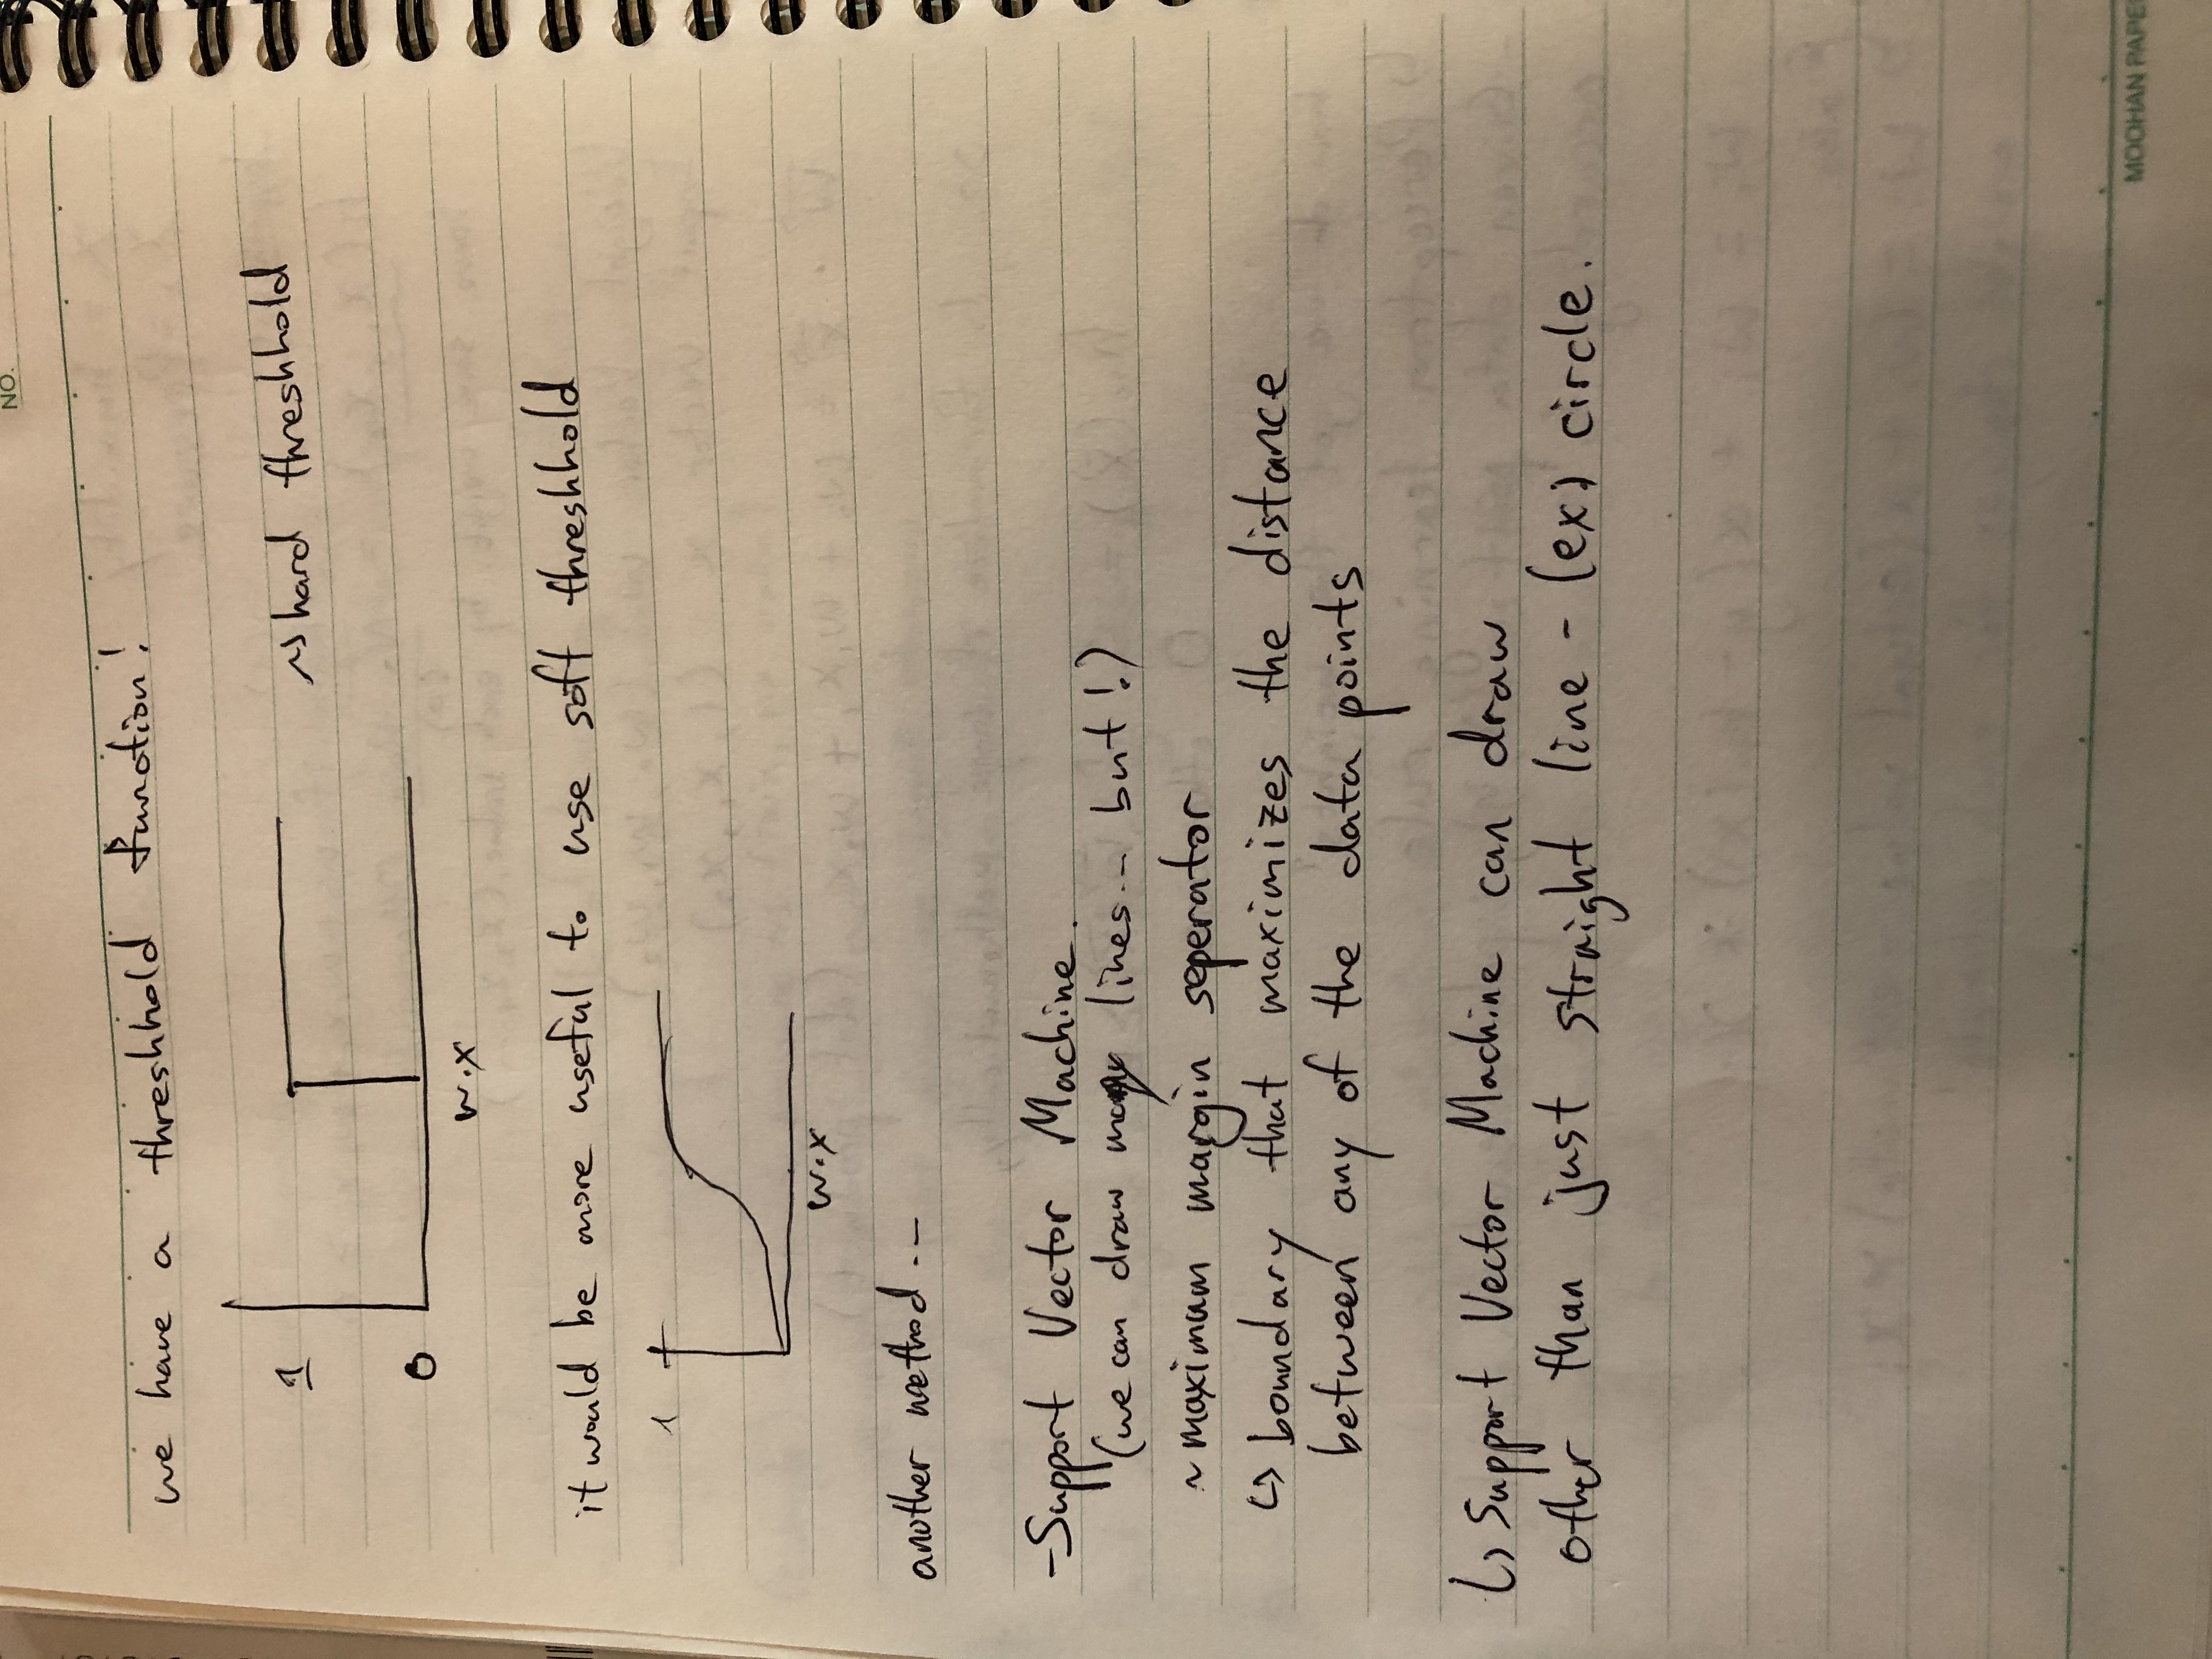 NO.
we have a threshhold function!
1
~> hard threshhold
0
w.x
it would be more useful to use soft threshhold
1
w.x
another method...
-Support Vector Machine.
(we can draw many lines... but!)
~ maximum margin seperator
↳ boundary that maximizes the distance
between any of the data points
↳ Support Vector Machine can draw
other than just straight line - (ex) circle.
MOOHAN PAPE